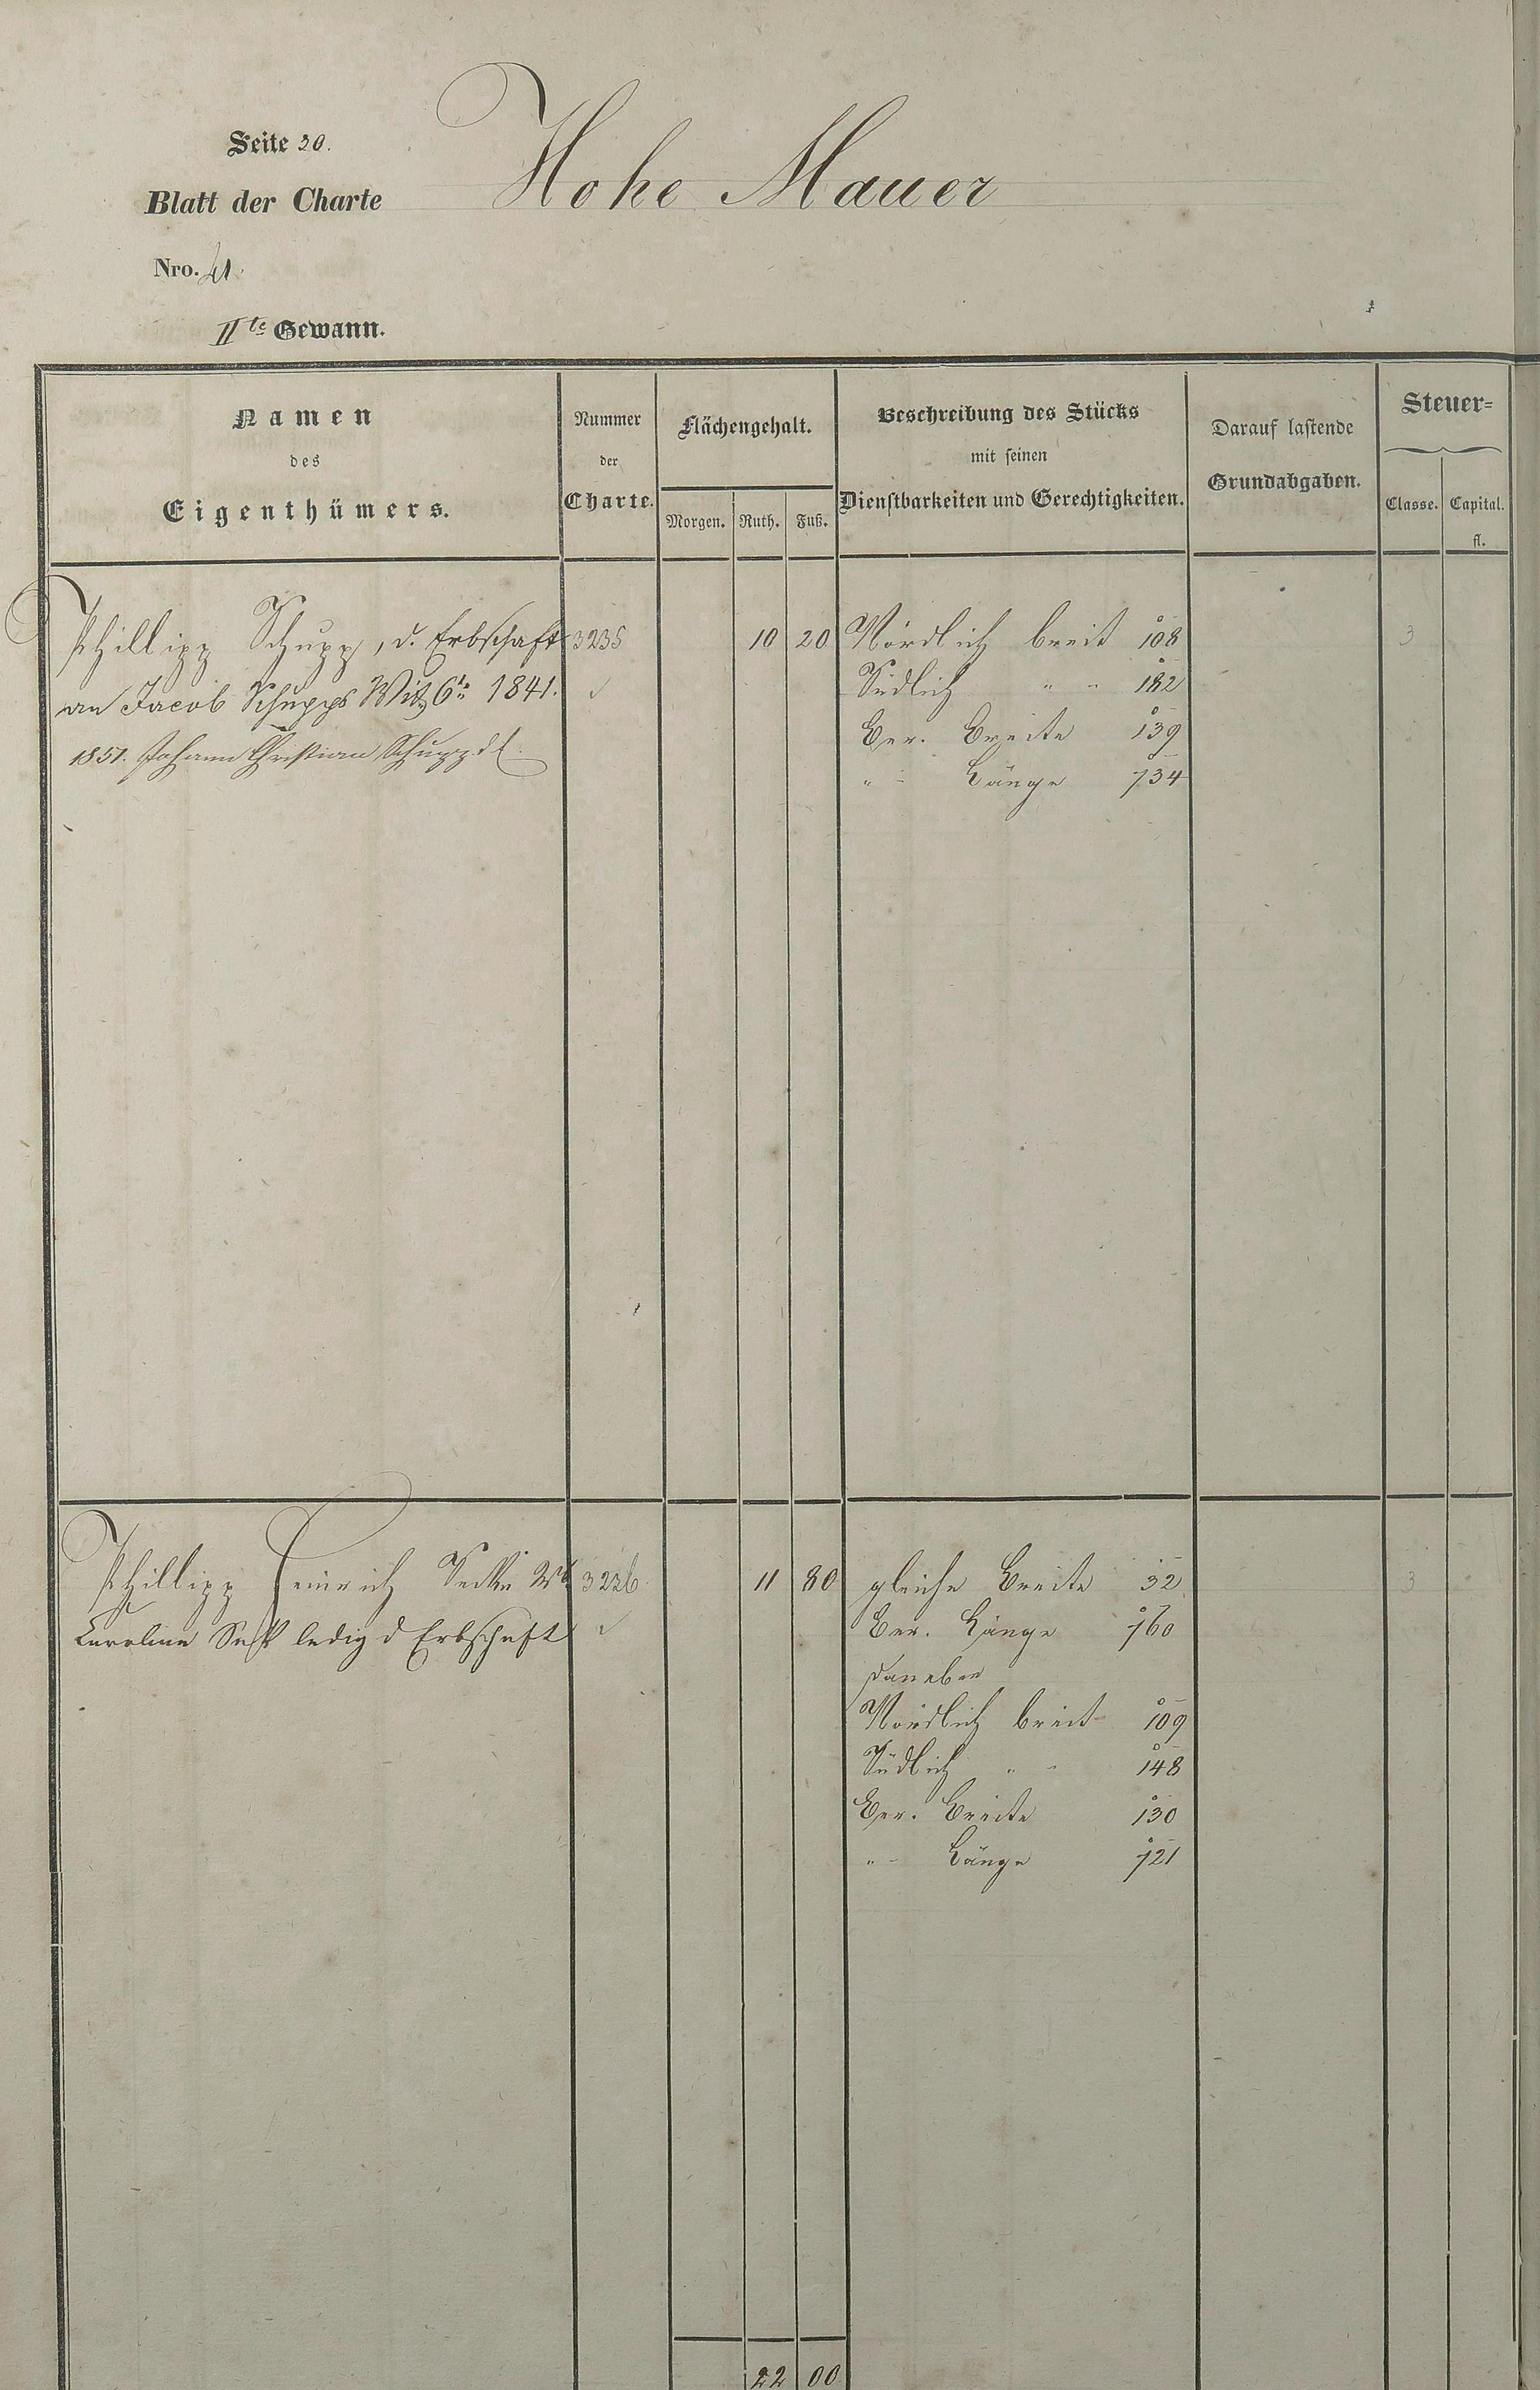 Seite 20.
Hohe Mauer
Blatt der Charte
Nro. 41.
IIte Gewann.
Namen
des
Eigenthümers.
Nummer
der
Charte.
Flächengehalt.
Morgen. Ruth. Fuß.
Beschreibung des Stücks
mit seinen
Dienstbarkeiten und Gerechtigkeiten.
Darauf lastende
Grundabgaben.
Steuer=
Classe. Capital.
fl.
Phillipp Schupp, d. Erbschaft 3235 10 20 Nördlich breit 108 3
an Jacob Schupps 1841. Südlich " " 182
Ber. Breite 139
1851. Johann Christian Schupp
" " Länge 734
Phillipp Heinrich 3236 11 80 gleiche Breite 32 3
Caroline ledig d Erbschaft Ber. Länge 760
daneben
Nördlich breit 109
Südlich " " 148
Ber. Breite 130
" " Länge 721
22 00